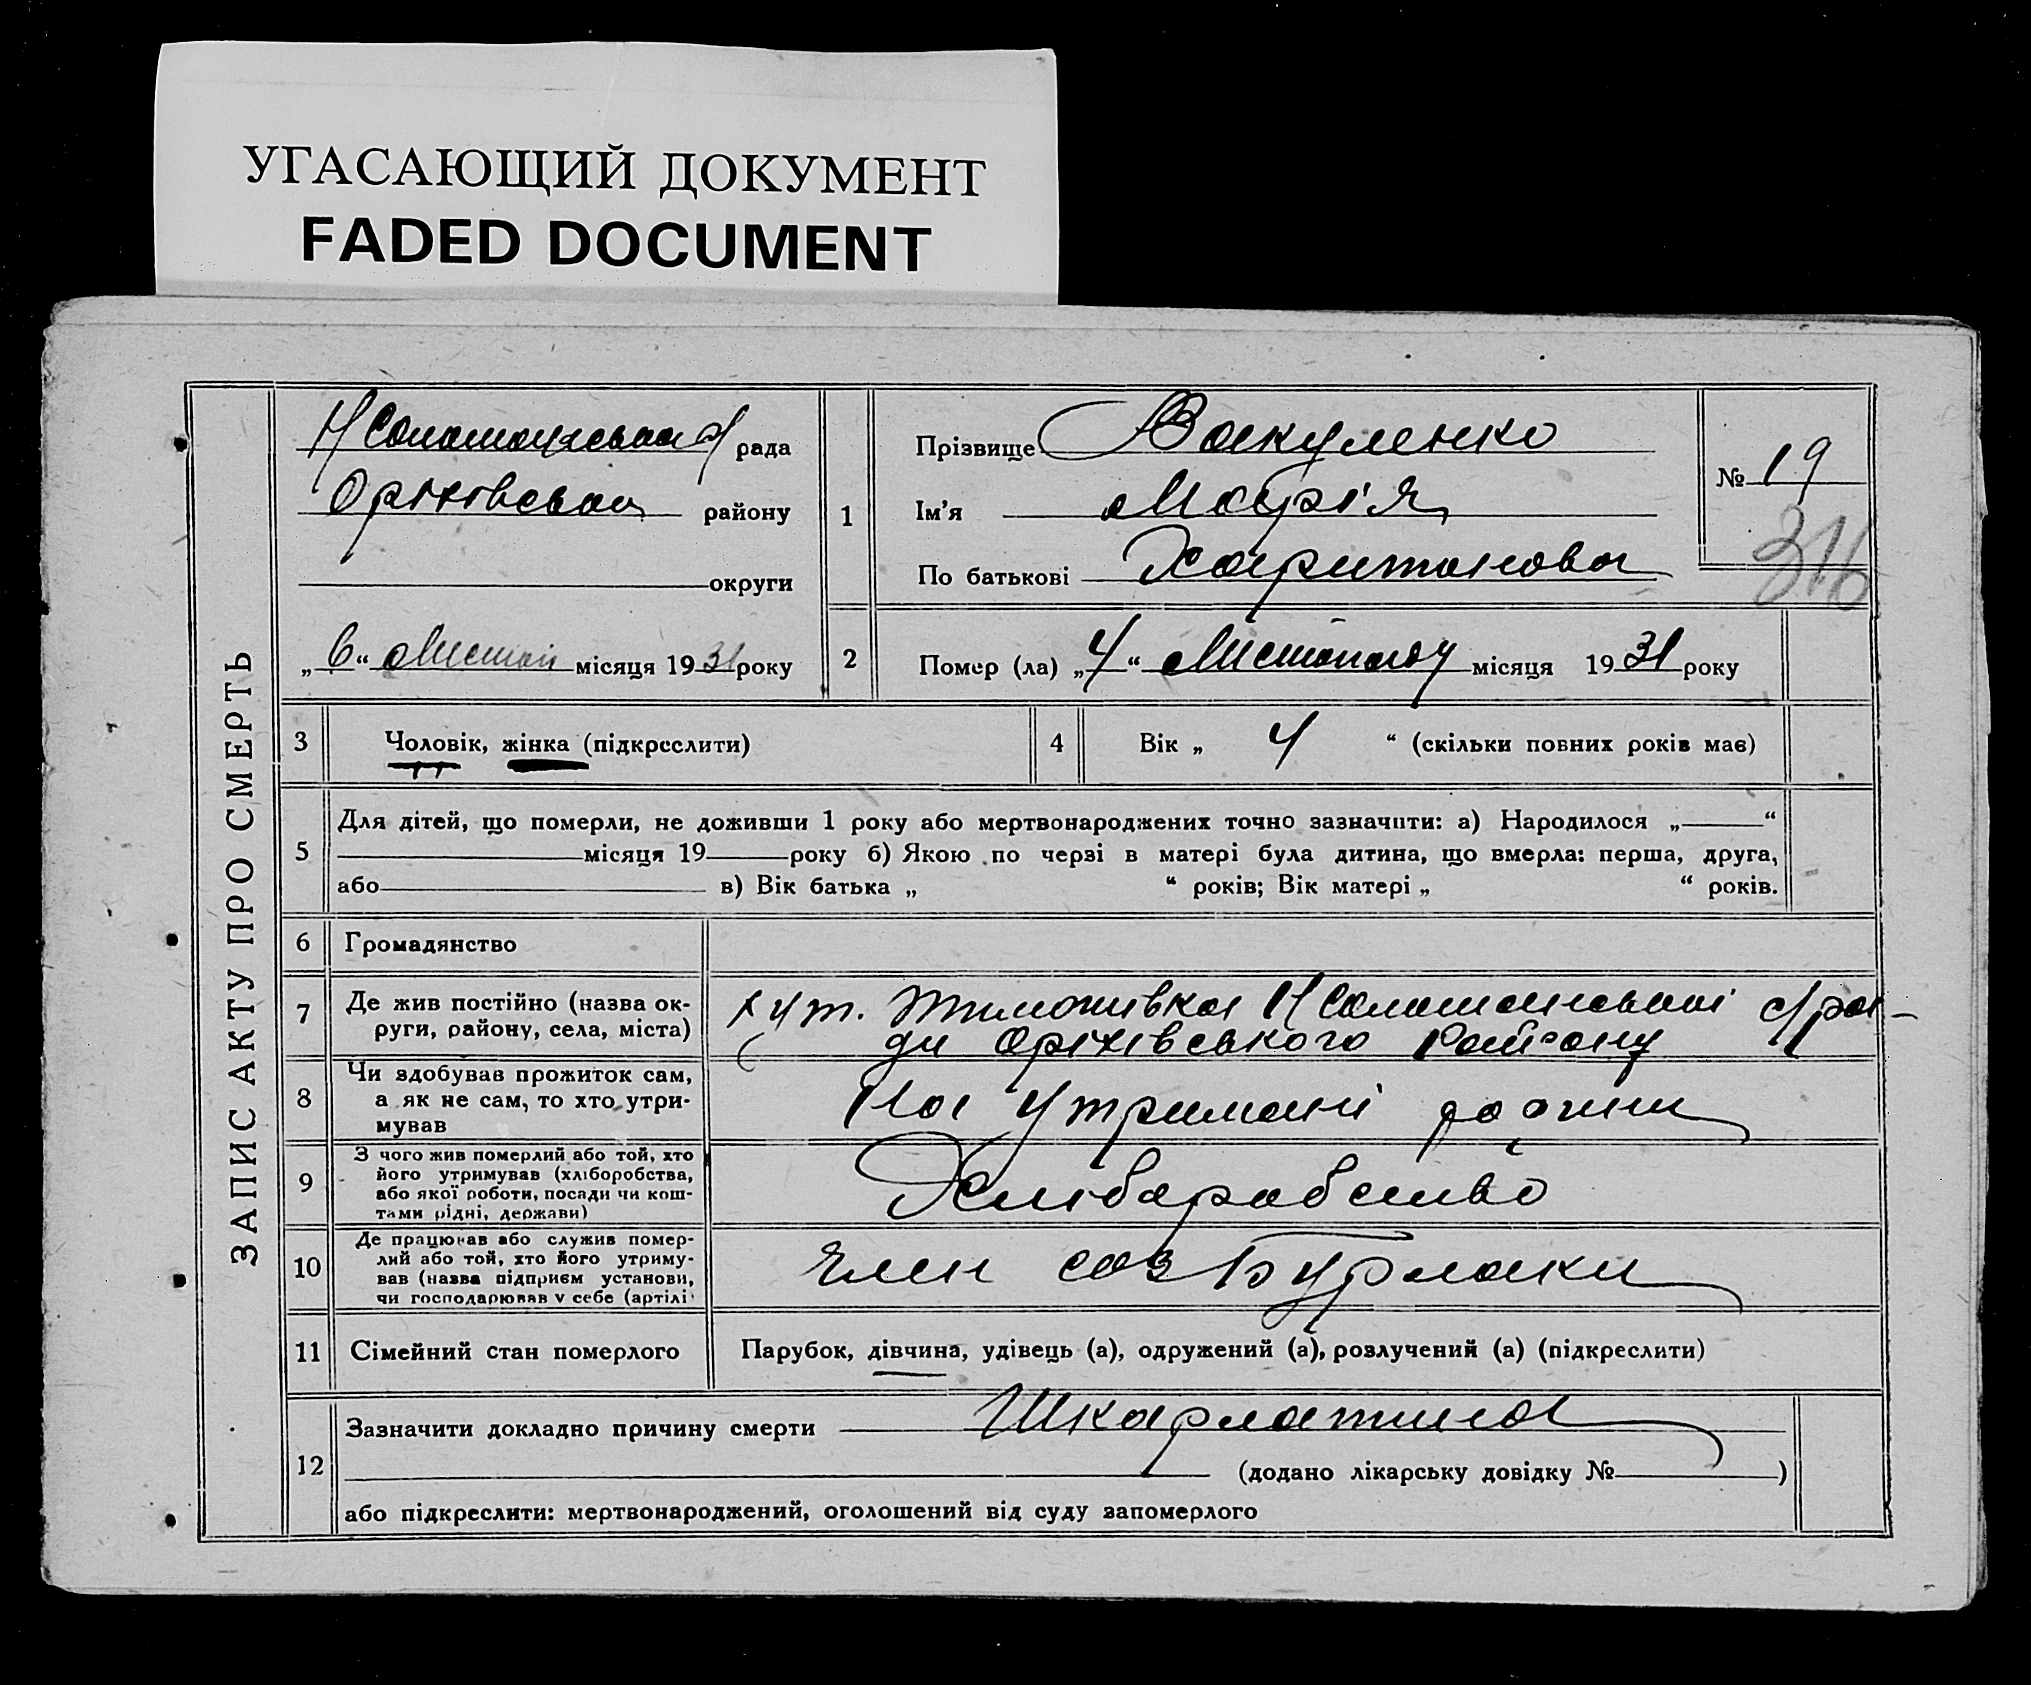 УГАСАЮЩИЙ ДОКУМЕНТ
FADED DOCUMENT
ЗАПИС АКТУ ПРО СМЕРТЬ
рада
Оріхівська району
округи
„6“ Листоп місяця 1931 року
1
Прізвище Вакуленко
Ім'я Марія
По батькові Харитонова
№ 19
316
2
Помер (ла) „4“ Листопаду місяця 1931 року
3 Чоловік, жінка (підкреслити)
4 Вік „ 4 “ (скільки повних років має)
5 Для дітей, що померли, не доживши 1 року або мертвонароджених точно зазначити: а) Народилося „ “
місяця 19 року б) Якою по черзі в матері була дитина, що вмерла: перша, друга,
або в) Вік батька „ “ років; Вік матері „ “ років.
6 Громадянство
7 Де жив постійно (назва ок-
руги, району, села, міста)
хут. Тимошивка с/ра-
ди Оріхівського Району
8 Чи здобував прожиток сам,
а як не сам, то хто утри-
мував
На утримані родини
9 З чого жив померлий або той, хто
його утримував (хліборобства,
або якої роботи, посади чи кош-
тами рідні, держави)
Хлібаробство
10 Де працював або служив помер-
лий або той, хто його утриму-
вав (назва підприєм установи,
чи господарював у себе (артілі
Член соз Бурлаки
11 Сімейний стан померлого
Парубок, дівчина, удівець (а), одружений (а), розлучений (а) (підкреслити)
12 Зазначити докладно причину смерти Шкарлатина
(додано лікарську довідку № )
або підкреслити: мертвонароджений, оголошений від суду запомерлого